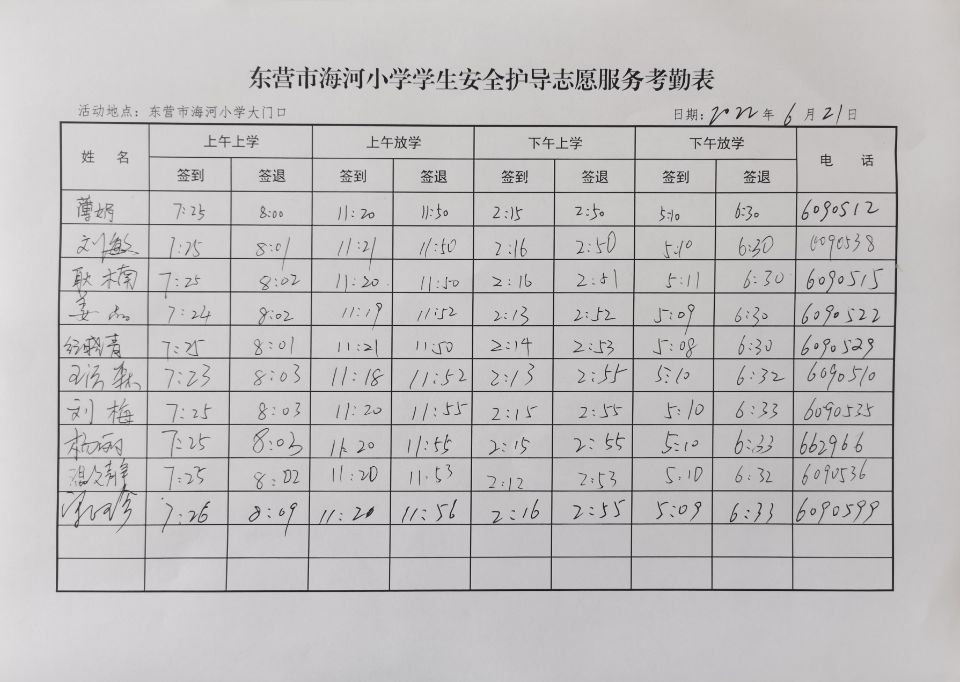 东营市海河小学学生安全护导志愿服务考勤表
活动地点：东营市海河小学大门口 日期：2022年6月21日
姓 名 上午上学 上午放学 下午上学 下午放学 电 话
签到 签退 签到 签退 签到 签退 签到 签退
薄娟 7:25 8:00 11:20 11:50 2:15 2:50 5:10 6:30 6090512
刘敏 7:25 8:01 11:21 11:50 2:16 2:50 5:10 6:30 6090538
耿楠 7:25 8:02 11:20 11:50 2:16 2:51 5:11 6:30 6090515
姜 7:24 8:02 11:19 11:52 2:13 2:52 5:09 6:30 6090522
7:25 8:01 11:21 11:50 2:14 2:53 5:08 6:30 6090529
7:23 8:03 11:18 11:52 2:13 2:55 5:10 6:32 6090510
刘梅 7:25 8:03 11:20 11:55 2:15 2:55 5:10 6:33 6090535
7:25 8:03 11:20 11:55 2:15 2:55 5:10 6:33 662966
温文静 7:25 8:02 11:20 11:53 2:12 2:53 5:10 6:32 6090536
7:26 8:09 11:20 11:56 2:16 2:55 5:09 6:33 6090599